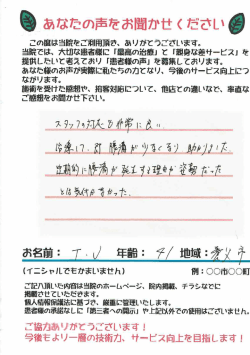 あなたの声をお聞かせください
この度は当院をご利用頂き、ありがとうございます。
当院では、大切な患者様に「最高の治療」と「親身な差サービス」を
提供したいと考えており「患者様の声」を募集しております。
あなた様のお声が実際に私たちの力となり、今後のサービス向上につ
ながります。
施術を受けた感想や、接客対応について、他店との違いなど、率直な
ご感想をお聞かせ下さい。
スタッフの対応も非常に良い
治療して、腰痛が少なくなり助かりました
定期的に腰痛が発生する理由が姿勢だった
とは気付かなかった。
お名前： T．J 年齢： 41 地域：
(イニシャルでもかまいません) 例：〇〇市〇〇町
ご記入頂いた内容は当院のホームページ、院内掲載、チラシなどに
掲載させていただきます。
個人情報保護法に基づき、厳重に管理いたします。
患者様の承諾なしに「第三者への開示」や上記以外での使用はございません。
ご協力ありがとうございます！
今後もより一層の技術力、サービス向上を目指します！